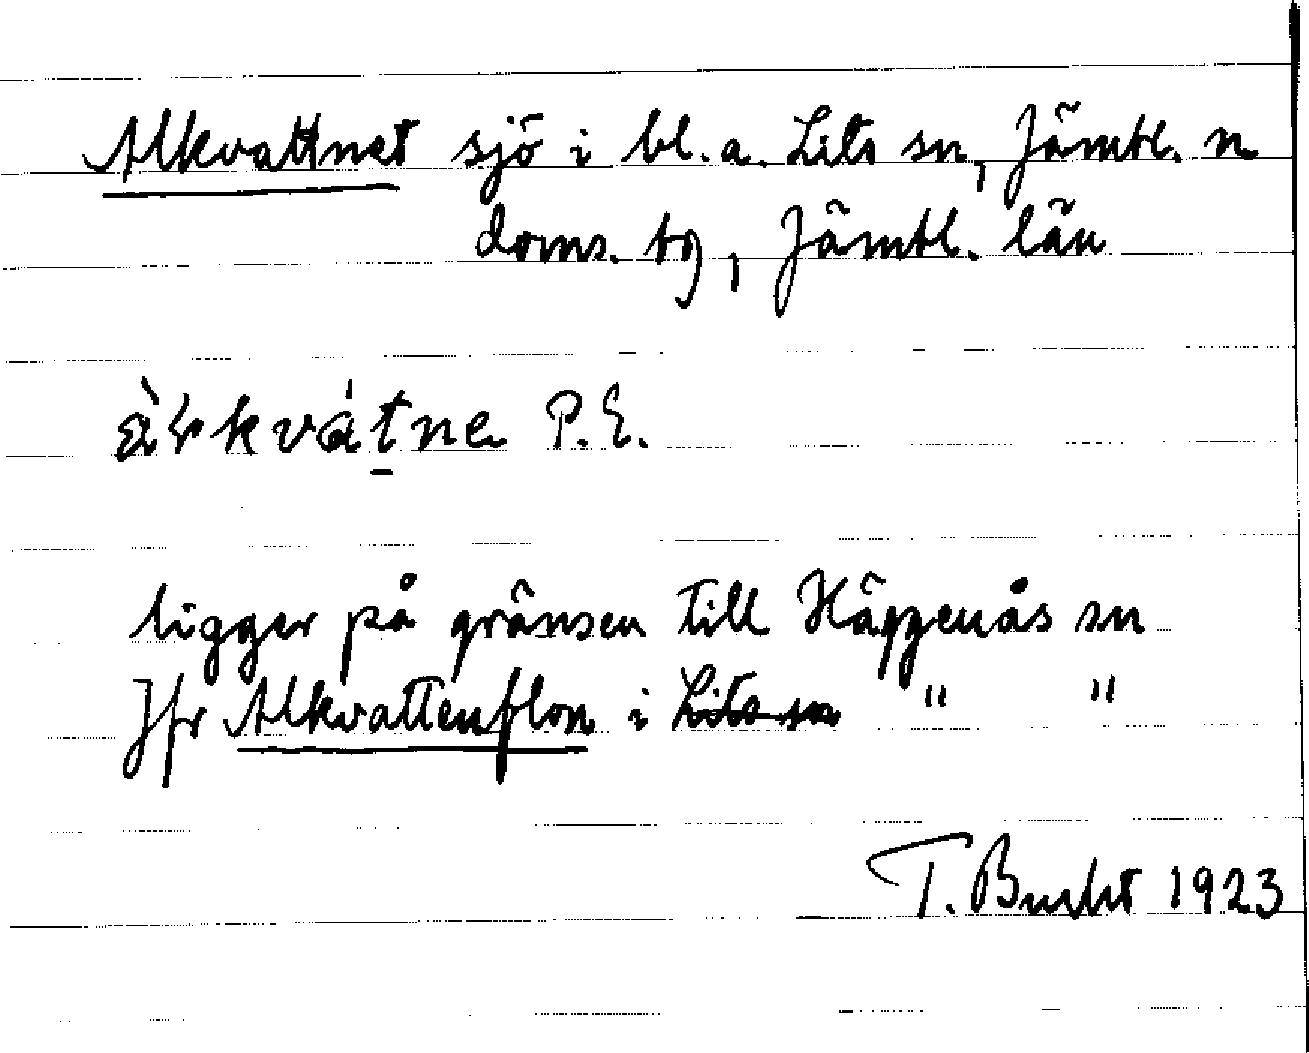 Alkvattnet sjö i bl. a. Lits sn, Jämtl. n
doms. tg, Jämtl. län
àrkvátne P. E.
ligger på gränsen till Häggenås sn
Jfr Alkvattenflon i Lits sn " "
T. Bucht 1923